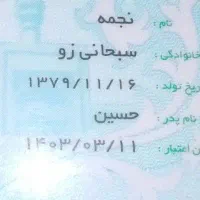 نام : نجمه
خانوادگی : سبحانی زو
تاریخ تولد : ۱۳۷۹/۱۱/۱۶
نام پدر : حسین
اعتبار : ۱۴۰۳/۰۳/۱۱